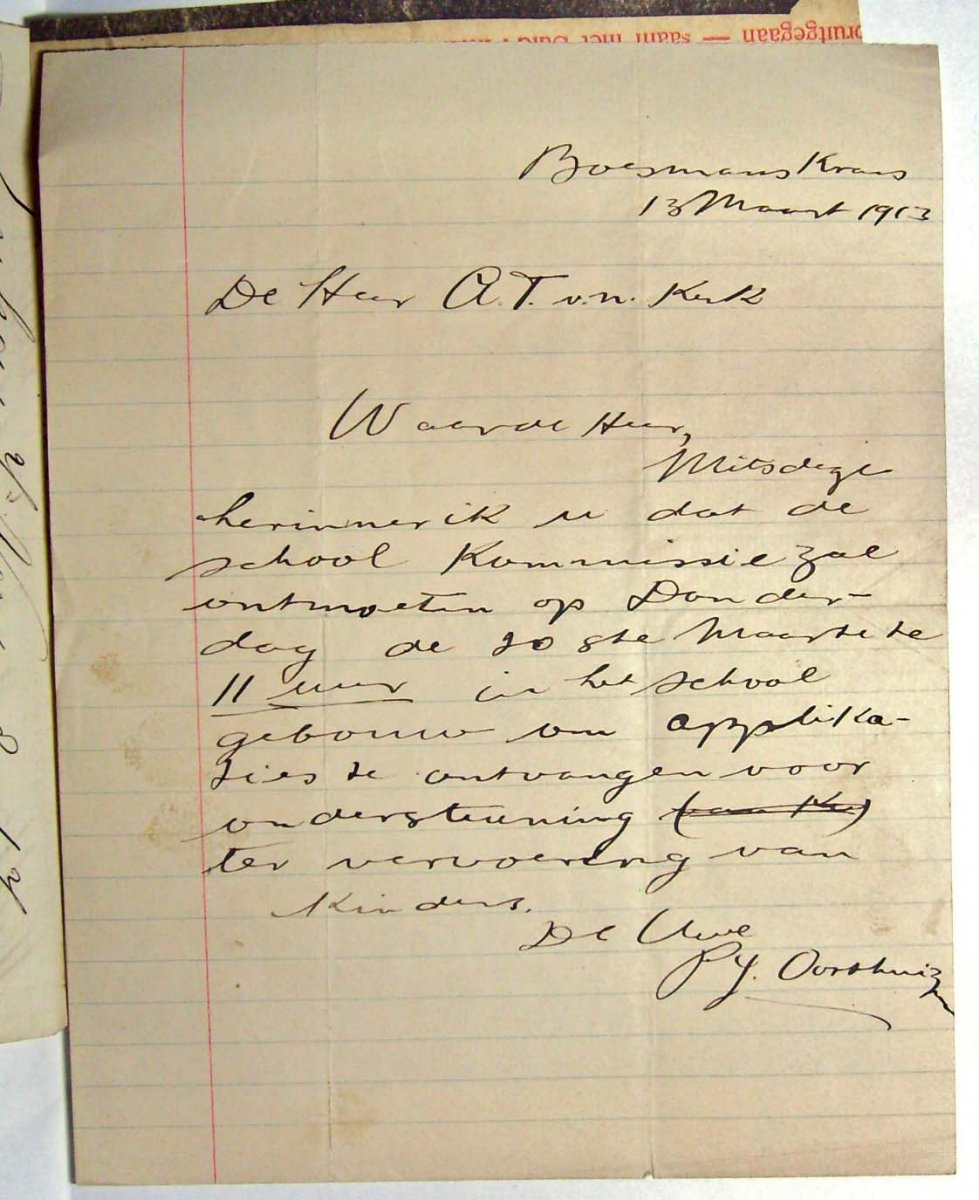 oruitgegaan — saam met Suid-
Boesmans Kraal
13 Maart 1913
De Heer A.T. v.n. Kerk
Waarde Heer,
Mitsdeze
herinner ik u dat de
school Kommissie zal
ontmoeten op Donder-
dag de 20ste Maart te
11 uur in het school
gebouw om applika-
ties te ontvangen voor
ondersteuning (van Ki)
ter vervoering van
Kinders.
De Uwe
P.J. Oosthuizen